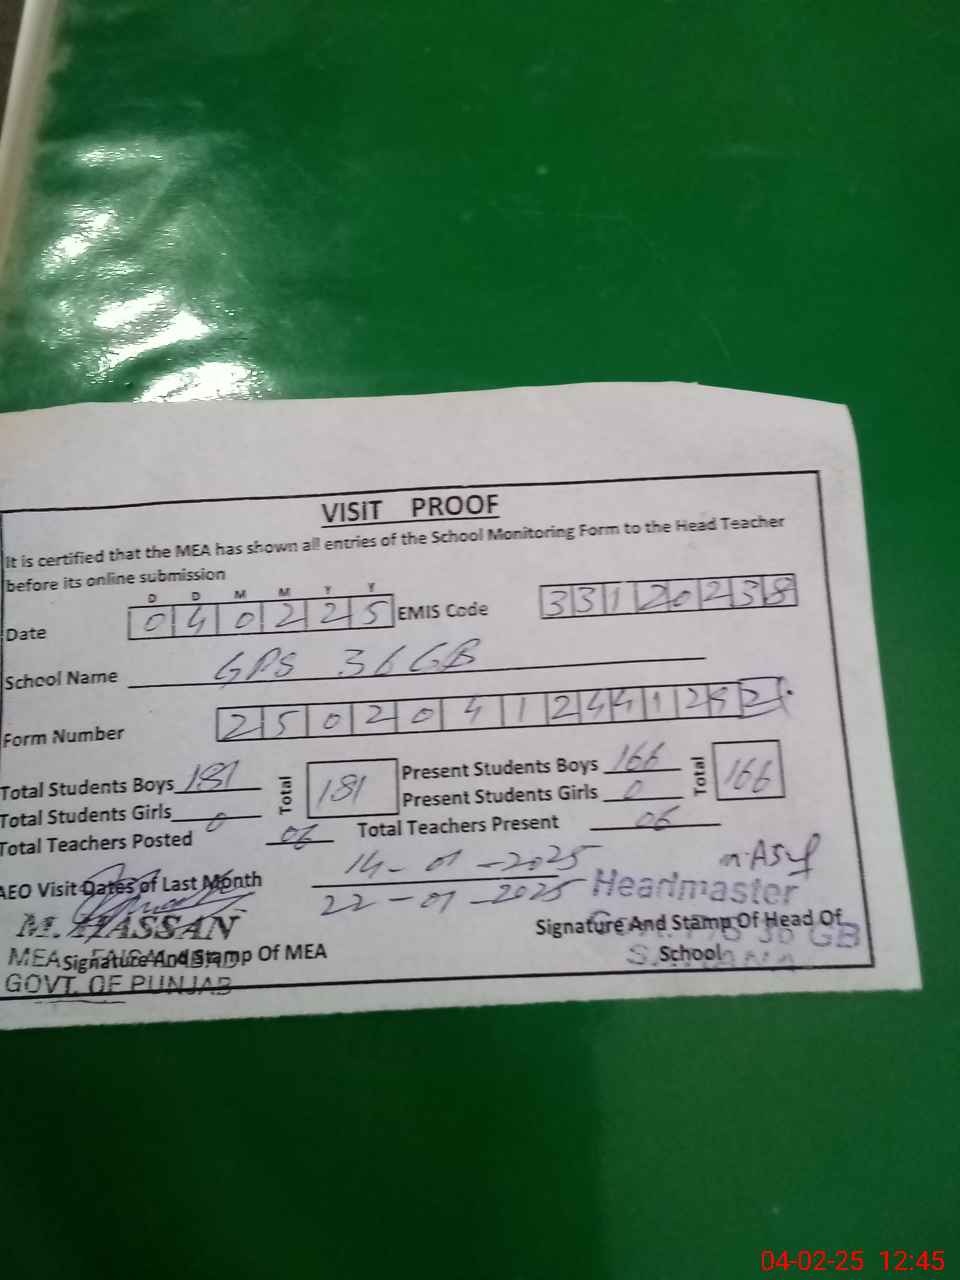 VISIT PROOF
It is certified that the MEA has shown all entries of the School Monitoring Form to the Head Teacher
before its online submission
D D M M Y Y
Date 0 4 0 2 2 5 EMIS Code 3 3 1 2 0 2 3 8
School Name GPS 36 GB
Form Number 2 5 0 2 0 4 1 2 4 4 1 2
Total Students Boys 181 Total 181 Present Students Boys 166 Total 166
Total Students Girls 0 Present Students Girls 0
Total Teachers Posted 06 Total Teachers Present 06
AEO Visit Dates of Last Month 14-01-2025
22-01-2025
Headmaster
M. HASSAN
Signature And Stamp Of Head Of
School
36 GB
MEA
Signature And Stamp Of MEA
GOVT. OF PUNJAB
04-02-25 12:45